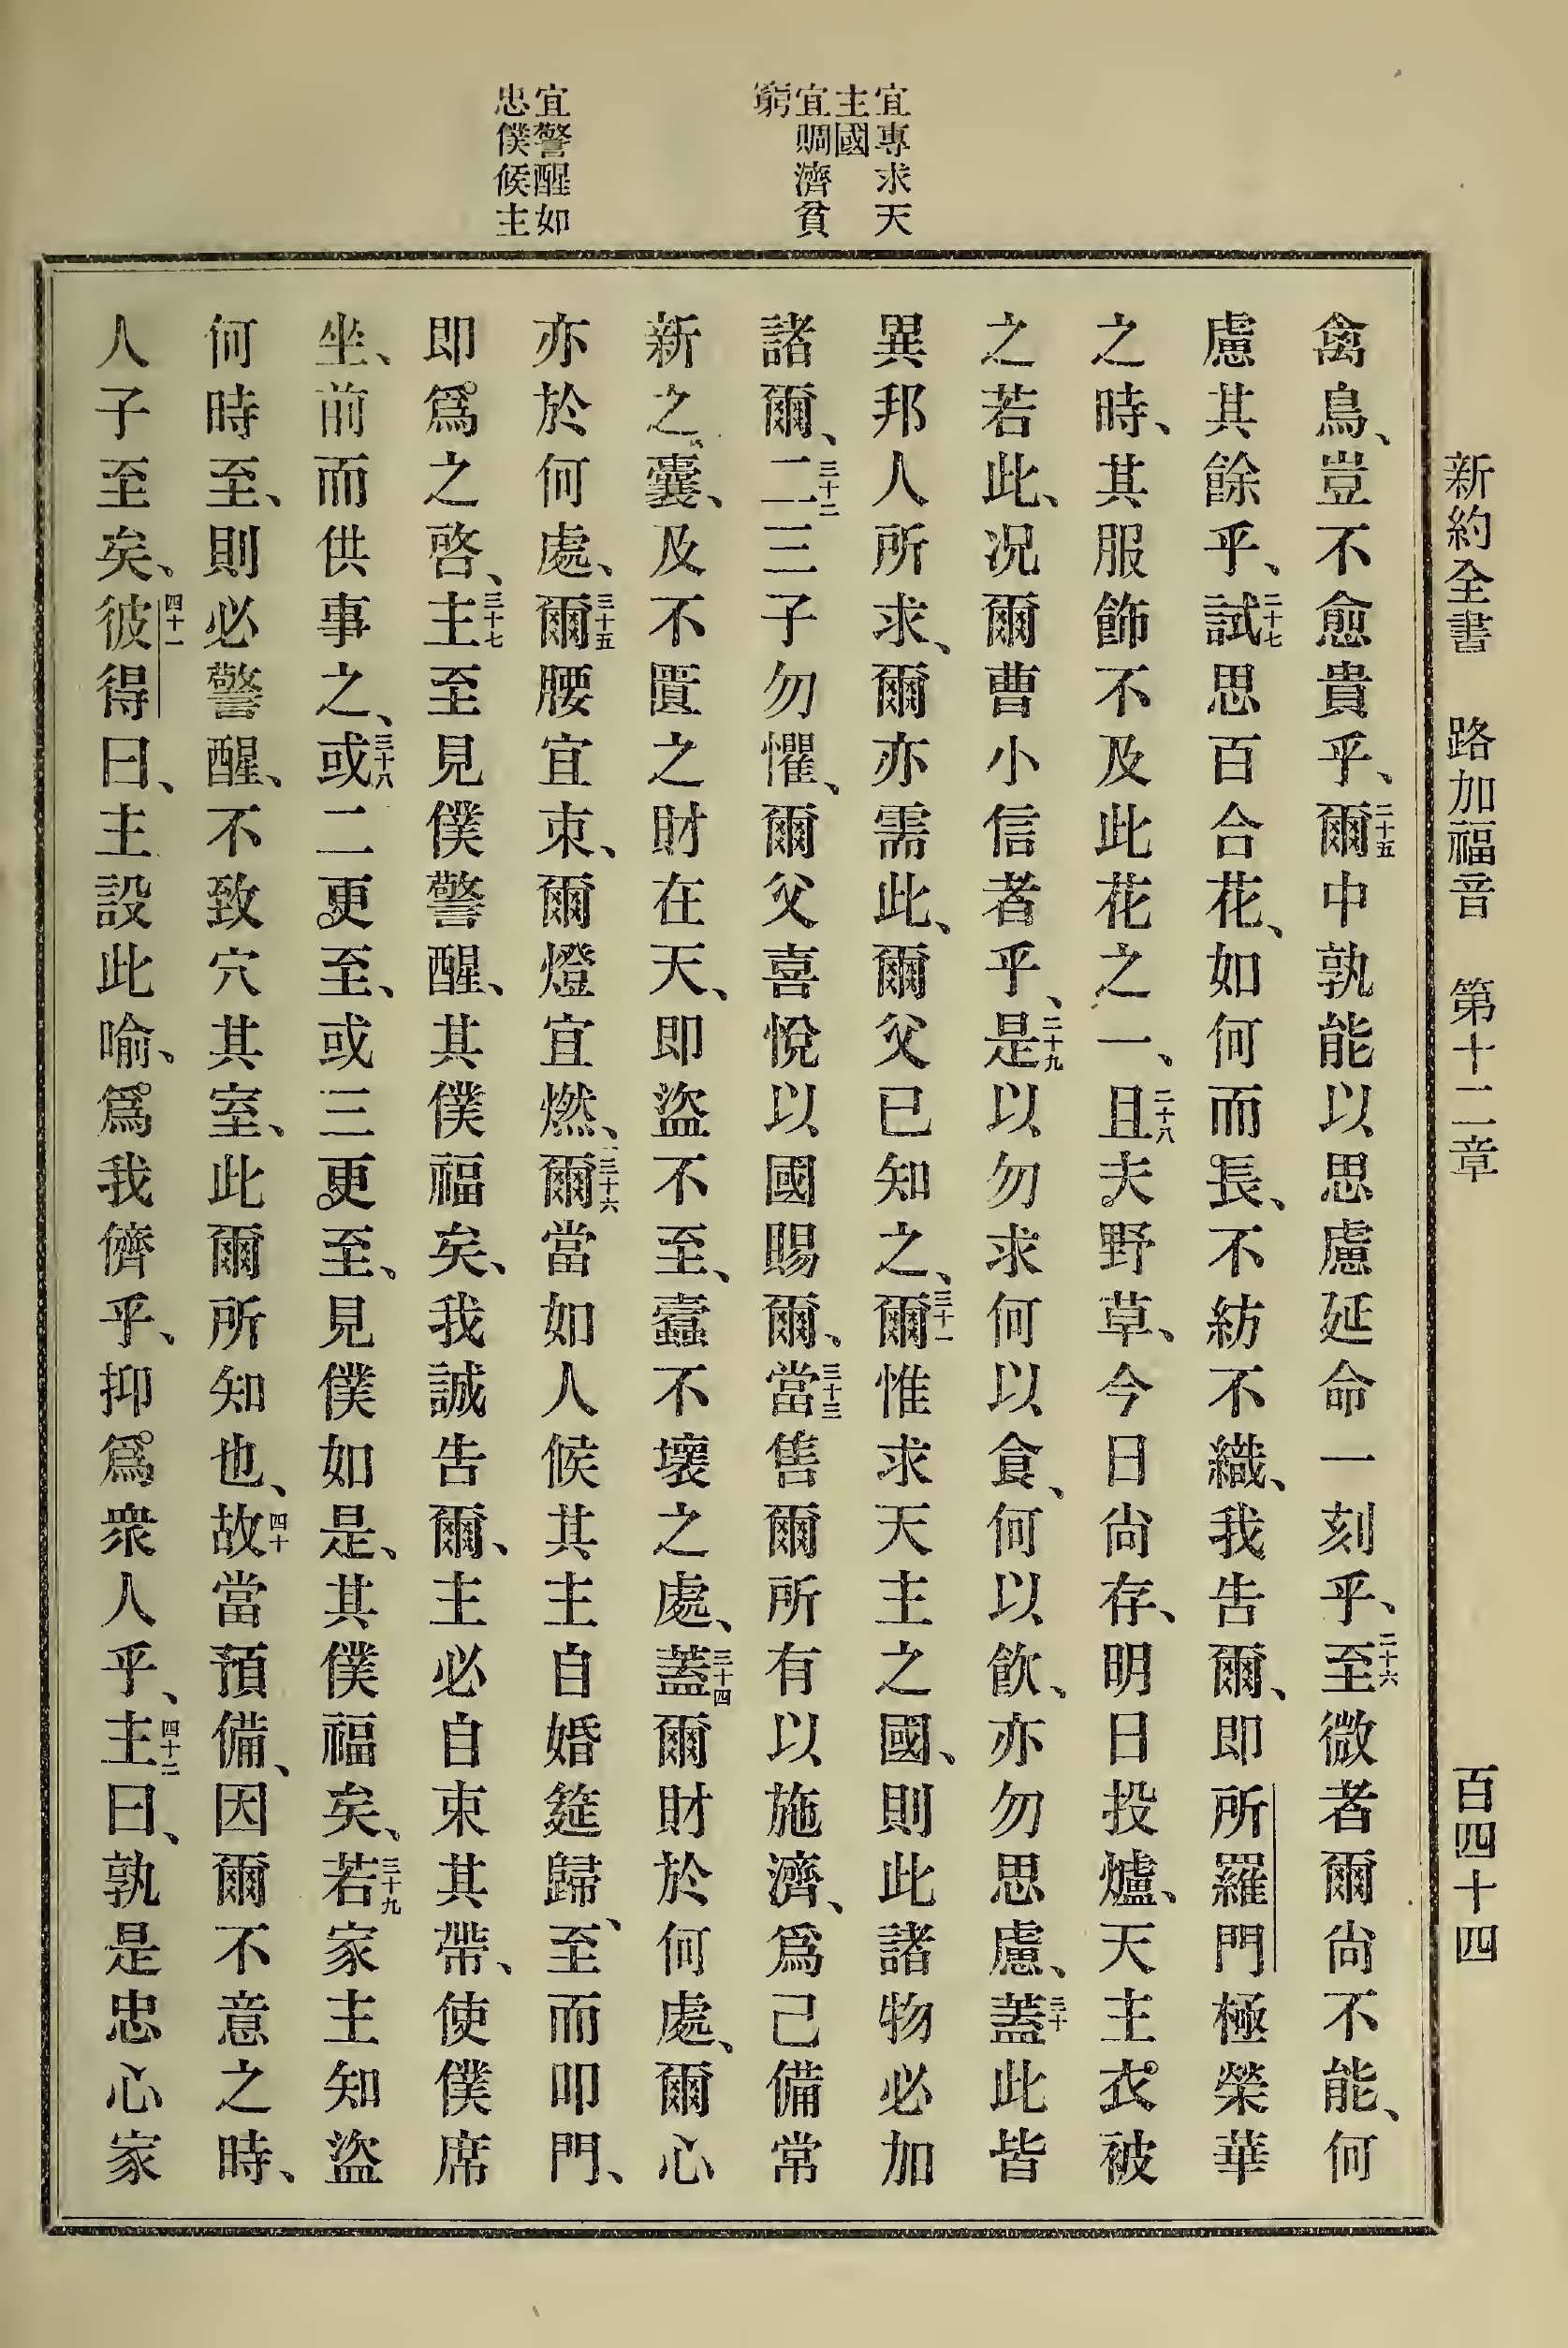 新約全書　路加福音　第十二章　百四十四
宜專求天
主國
宜賙濟貧
窮
宜警醒如
忠僕候主
禽鳥、豈不愈貴乎、二十五爾中孰能以思慮延命一刻乎、二十六至微者爾尙不能、何
慮其餘乎、二十七試思百合花、如何而長、不紡不織、我告爾、卽所羅門極榮華
之時、其服飾不及此花之一、二十八且夫野草、今日尙存、明日投爐、天主衣被
之若此、况爾曹小信者乎、二十九是以勿求何以食、何以飲、亦勿思慮、三十蓋此皆
異邦人所求、爾亦需此、爾父已知之、三十一爾惟求天主之國、則此諸物必加
諸爾、三十二二三子勿懼、爾父喜悅以國賜爾、三十三當售爾所有以施濟、爲己備常
新之囊、及不匱之財在天、卽盜不至、蠹不壞之處、三十四蓋爾財於何處、爾心
亦於何處、三十五爾腰宜束、爾燈宜燃、三十六爾當如人候其主自婚筵歸、至而叩門、
卽爲之啓、三十七主至見僕警醒、其僕福矣、我誠告爾、主必自束其帶、使僕席
坐、前而供事之、三十八或二更至、或三更至、見僕如是、其僕福矣、三十九若家主知盜
何時至、則必警醒、不致穴其室、此爾所知也、四十故當預備、因爾不意之時、
人子至矣、四十一彼得曰、主設此喻、爲我儕乎、抑爲衆人乎、四十二主曰、孰是忠心家